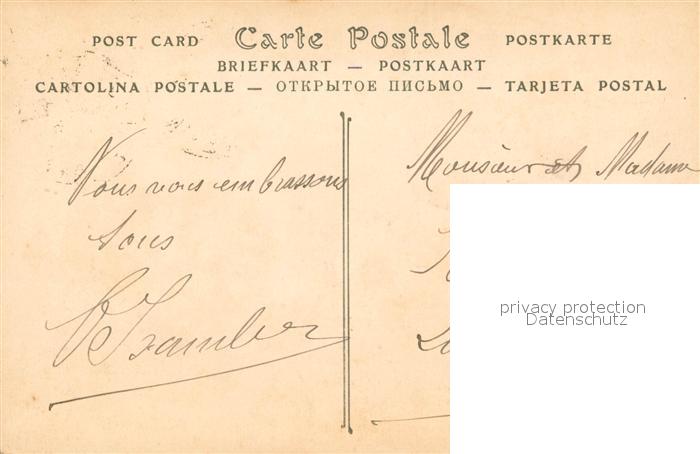 POST CARD Carte Postale POSTKARTE
BRIEFKAART — POSTKAART
CARTOLINA POSTALE — ОТКРЫТОЕ ПИСЬМО — TARJETA POSTAL
Nous vous embrassons
tous
Monsieur et Madame
privacy protection
Datenschutz